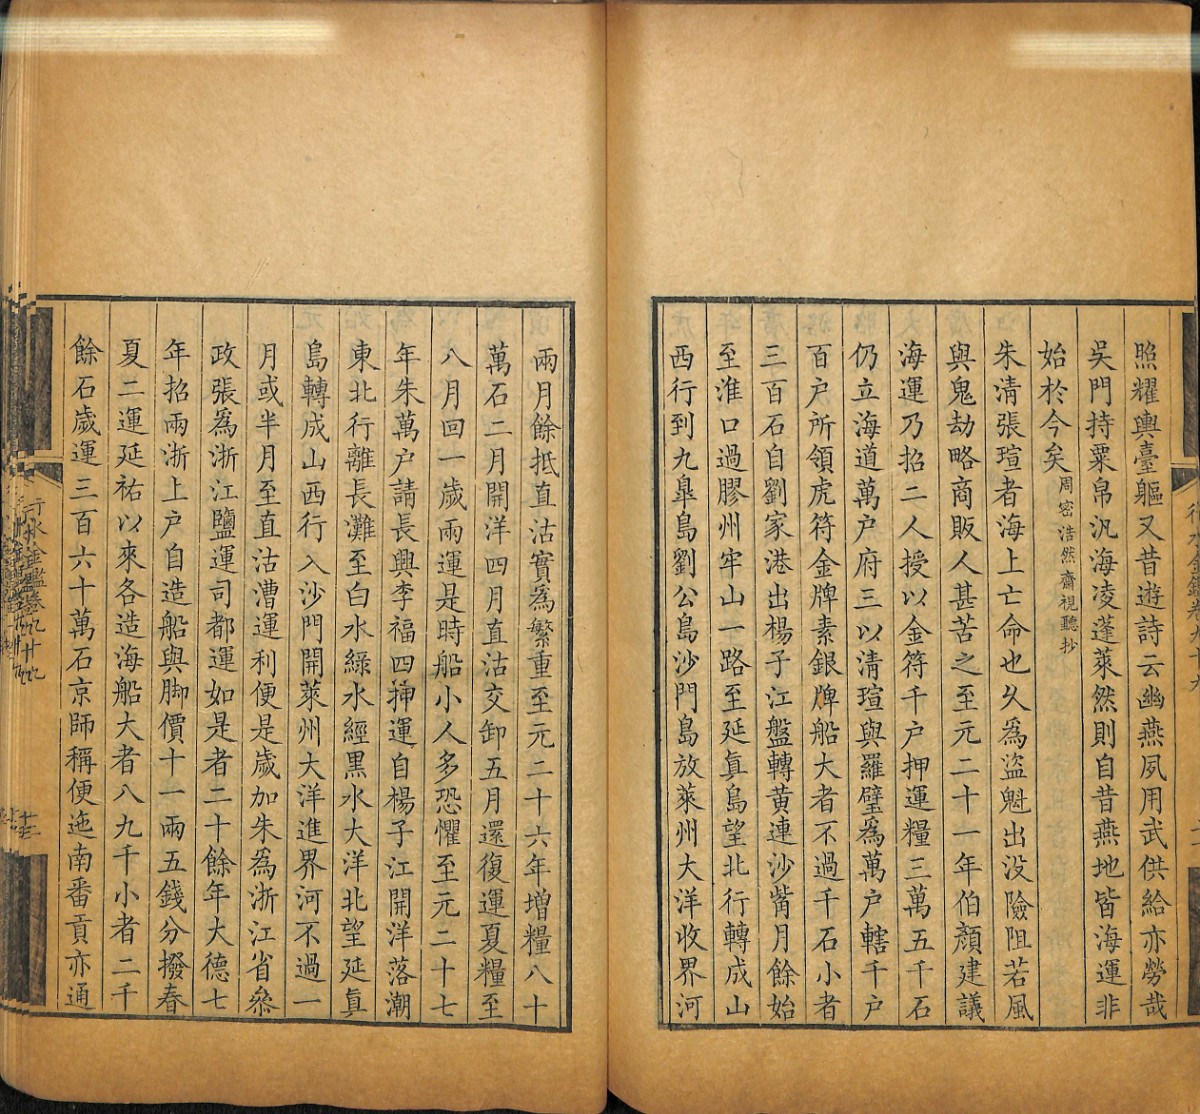 照耀輿臺軀又昔遊詩云幽燕夙用武供給亦勞哉
吳門持粟帛汎海凌蓬萊然則自昔燕地皆海運非
始於今矣周密浩然齋視聽抄
朱清張瑄者海上亡命也久為盜魁出没險阻若風
與鬼劫略商販人甚苦之至元二十一年伯顏建議
海運乃招二人授以金符千户押運糧三萬五千石
仍立海道萬户府三以清瑄與羅璧為萬户轄千户
百户所領虎符金牌素銀牌船大者不過千石小者
三百石自劉家港出楊子江盤轉黄連沙觜月餘始
至淮口過膠州牢山一路至延真島望北行轉成山
西行到九皋島劉公島沙門島放萊州大洋收界河
兩月餘抵直沽實為繁重至元二十六年增糧八十
萬石二月開洋四月直沽交卸五月還復運夏糧至
八月回一歲兩運是時船小人多恐懼至元二十七
年朱萬户請長興李福四押運自楊子江開洋落潮
東北行離長灘至白水綠水經黑水大洋北望延真
島轉成山西行入沙門開萊州大洋進界河不過一
月或半月至直沽漕運利便是歲加朱為浙江省叅
政張為浙江鹽運司都運如是者二十餘年大德七
年招兩浙上户自造船與脚價十一兩五錢分撥春
夏二運延祐以來各造海船大者八九千小者二千
餘石歲運三百六十萬石京師稱便迤南番貢亦通